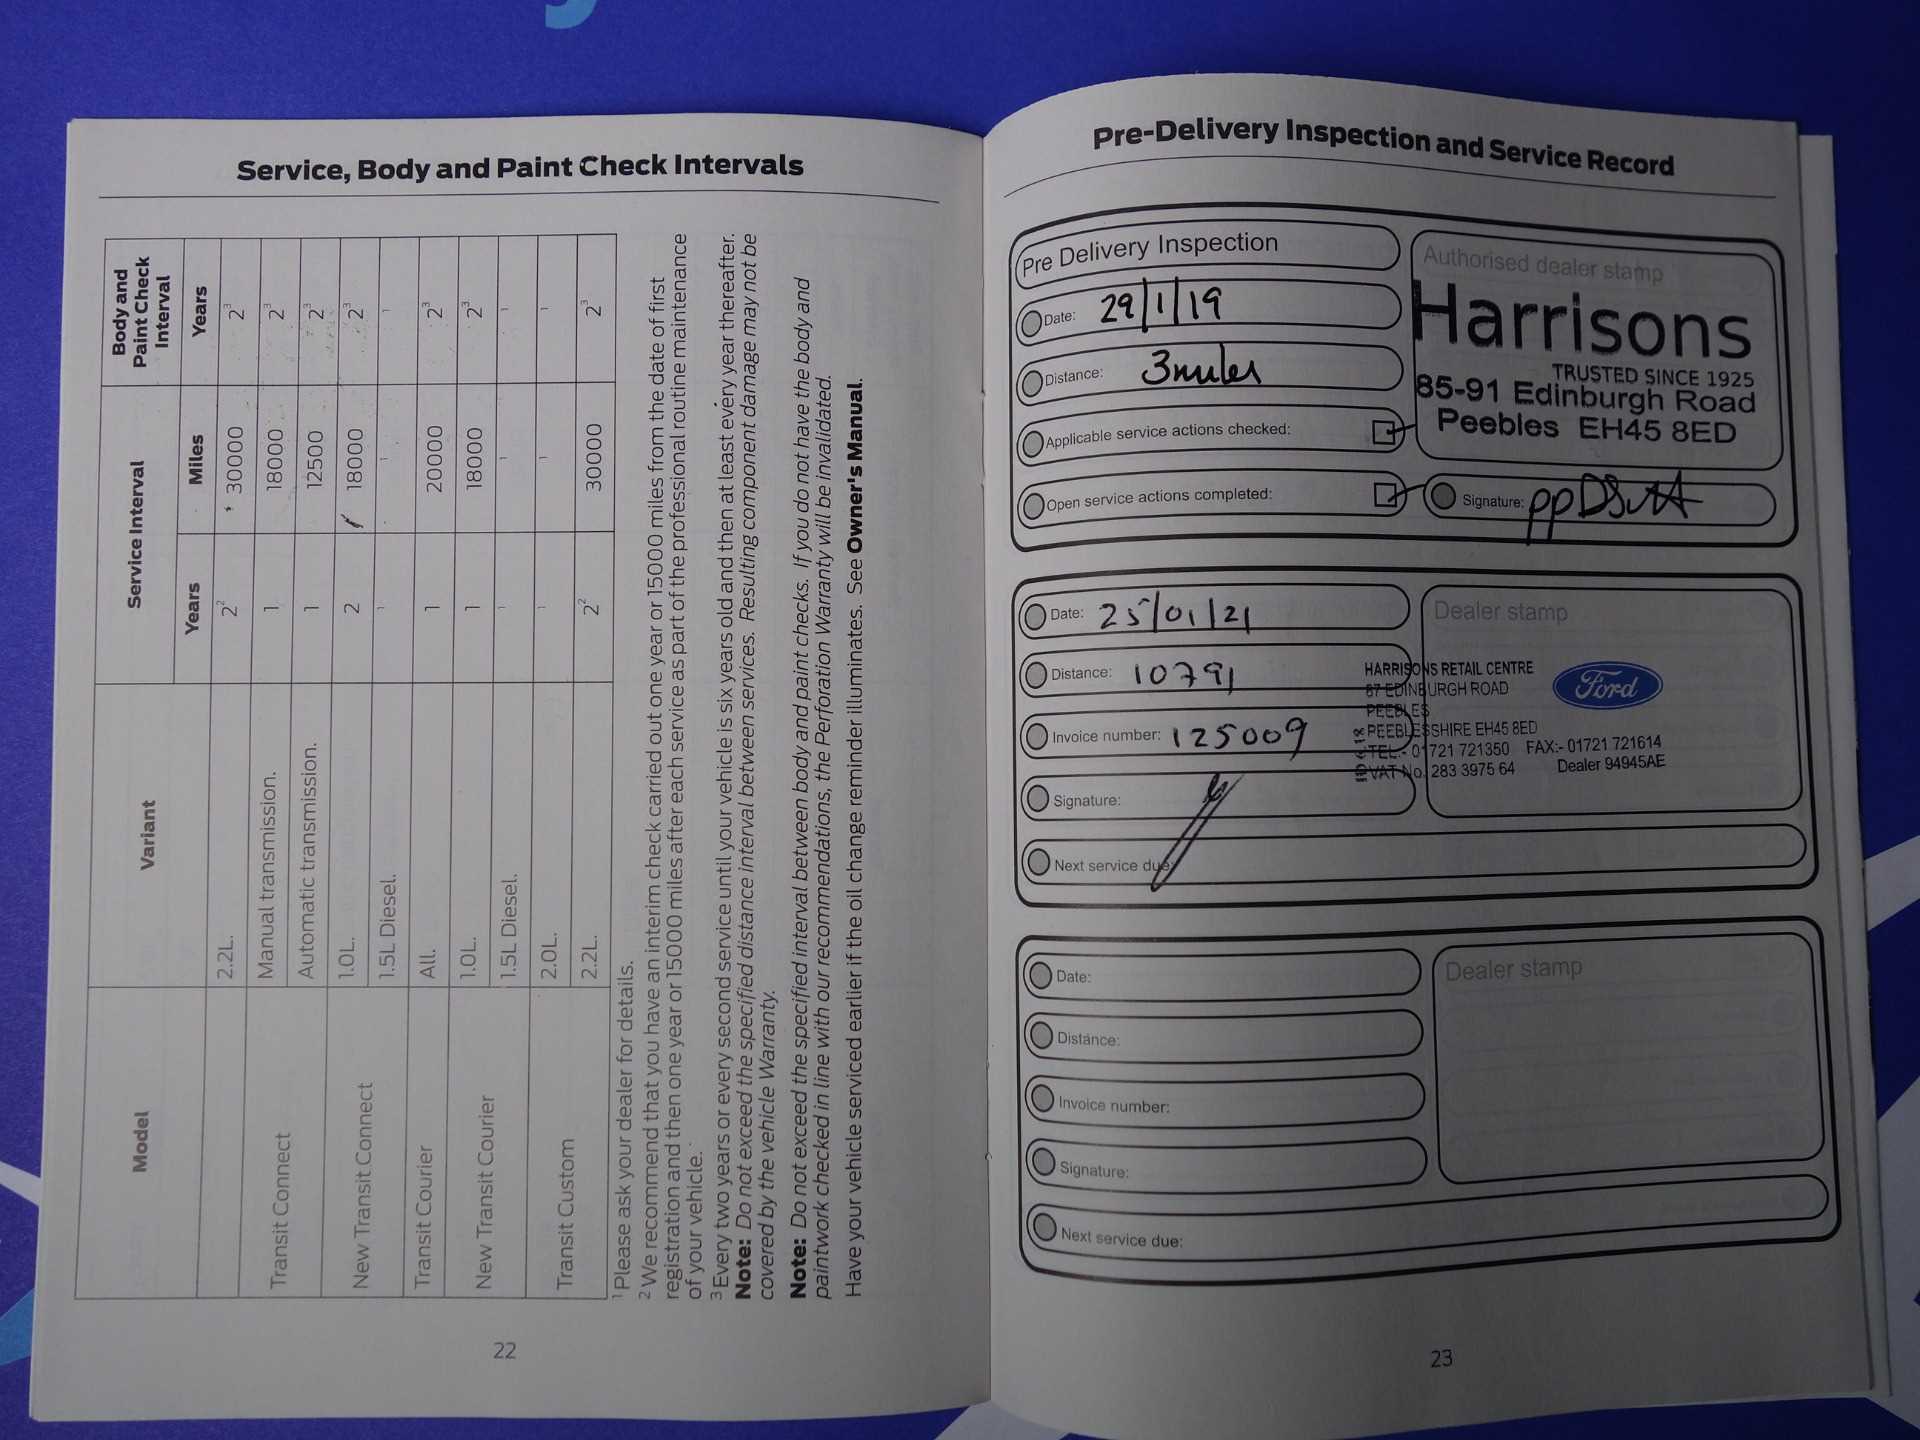 Service, Body and Paint Check Intervals
Model Variant Service Interval Body and Paint Check Interval
Years Miles Years
2.2L. 2² 30000 2³
Transit Connect Manual transmission. 1 18000 2³
Automatic transmission. 1 12500 2³
New Transit Connect 1.0L. 2 18000 2³
1.5L Diesel. 1 1 1
Transit Courier All. 1 20000 2³
New Transit Courier 1.0L. 1 18000 2³
1.5L Diesel. 1 1 1
Transit Custom 2.0L. 1 1 1
2.2L. 2² 30000 2³
¹ Please ask your dealer for details.
² We recommend that you have an interim check carried out one year or 15000 miles from the date of first
registration and then one year or 15000 miles after each service as part of the professional routine maintenance
of your vehicle.
³ Every two years or every second service until your vehicle is six years old and then at least every year thereafter.
Note: Do not exceed the specified distance interval between services. Resulting component damage may not be
covered by the vehicle Warranty.
Note: Do not exceed the specified interval between body and paint checks. If you do not have the body and
paintwork checked in line with our recommendations, the Perforation Warranty will be invalidated.
Have your vehicle serviced earlier if the oil change reminder illuminates. See Owner's Manual.
22
Pre-Delivery Inspection and Service Record
Pre Delivery Inspection
Date: 29/1/19
Distance: 3 miles
Applicable service actions checked:
Open service actions completed:
Authorised dealer stamp
Harrisons
TRUSTED SINCE 1925
85-91 Edinburgh Road
Peebles EH45 8ED
Signature:
Date: 25/01/21
Distance: 10791
Invoice number: 125009
Signature:
Next service due:
Dealer stamp
HARRISONS RETAIL CENTRE
87 EDINBURGH ROAD
PEEBLES
PEEBLESSHIRE EH45 8ED
TEL:- 01721 721350 FAX:- 01721 721614
VAT No. 283 3975 64 Dealer 94945AE
Ford
Date:
Distance:
Invoice number:
Signature:
Next service due:
Dealer stamp
23